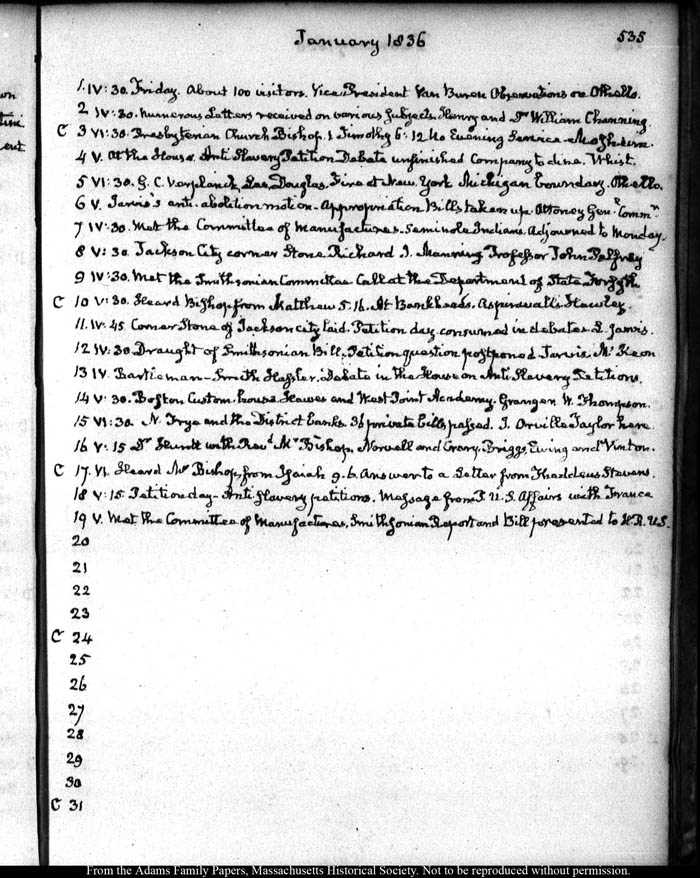 January 1836
535
1. IV: 30. Friday. About 100 visitors. Vice President Van Buren Observations on Othello.
2 IV: 30. Numerous Letters received on various Subjects. Henry and Dr William Channing
C 3 VI: 30. Presbyterian Church Bishop. 1 Timothy 6: 12 No Evening Service
4 V. At the House. Anti Slavery Petition Debate unfinished Company to dine. Whist.
5 VI: 30. G. C. Verplanck, Lee, Douglas, Fire at New York Michigan boundary. Othello.
6 V. Jarvis's anti-abolition motion. Appropriation Bills taken up. Attorney Genl Commn
7 IV: 30. Met the Committee of Manufactures. Seminole Indians. Adjourned to Monday.
8 V: 30. Jackson City corner Stone. Richard I. Manning Professor John Palfrey
9 IV: 30. Met the Smithsonian Committee Call at the Department of State Forsyth
C 10 V: 30. Heard Bishop from Matthew 5. 16. At Bankheads. Aspinwalls Hawley.
11. IV: 45. Corner Stone of Jackson city laid. Petition day consumed in debates. L. Jarvis.
12 IV: 30. Draught of Smithsonian Bill. Petition question postponed Jarvis, McKeon
13 IV. Smith Hassler. Debate in the House on Anti Slavery Petitions.
14 V: 30. Boston Custom-house. Hawes and West Point Academy. Granger W. Thompson.
15 VI: 30. N. Frye and the District banks. 36 private bills passed. J. Orville Taylor here
16 V: 15 Dr Hunt with Revd Mr Bishop, Norvell and Crary, Briggs, Ewing and Vinton.
C 17. VI. Heard Mr Bishop, from Isaiah 9. 6. Answer to a Letter from Thaddeus Stevens.
18 V: 15. Petition day - Anti Slavery petitions. Message from P. U. S. Affairs with France
19 V. Met the Committee of Manufactures, Smithsonian Report and Bill presented to H. R. U.S.
20
21
22
23
C 24
25
26
27
28
29
30
C 31
From the Adams Family Papers, Massachusetts Historical Society. Not to be reproduced without permission.